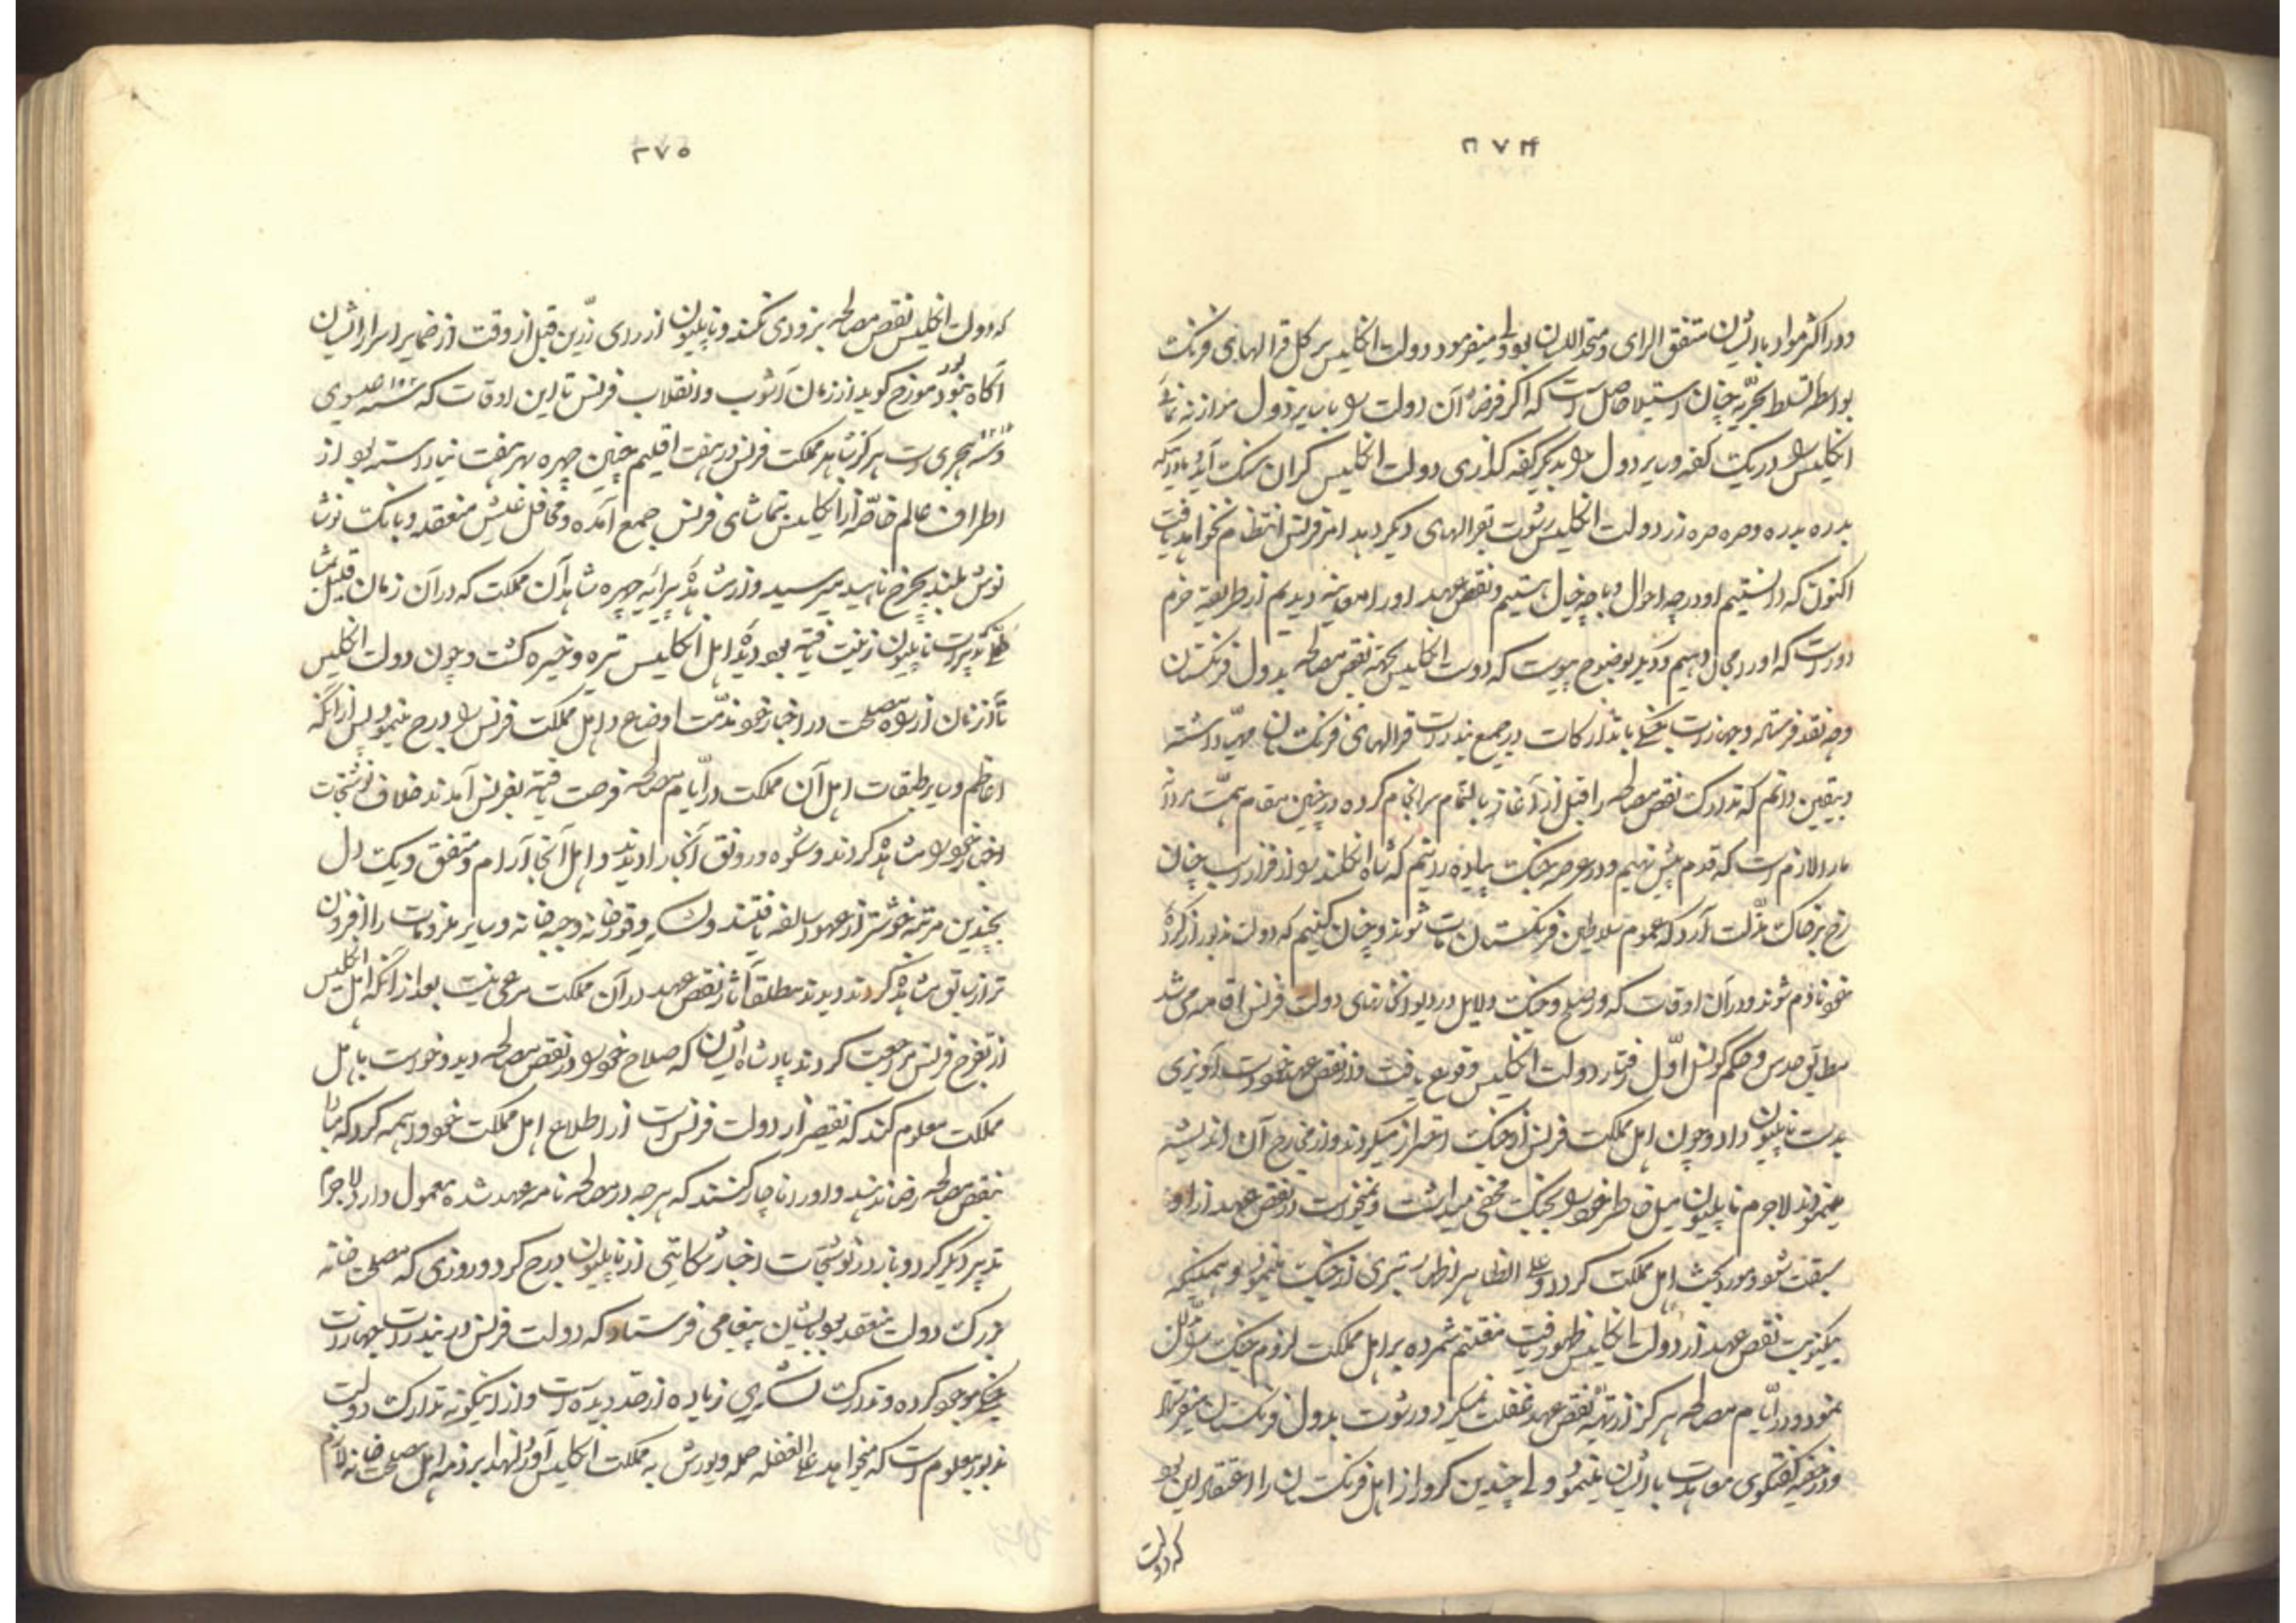 ۲۷۴
و در اکثر مواد با ایشان متفق الرای و متحد اللسان بود و میفرمود دولت انکلیس بر کل قرالهای فرنک
بواسطه تسلط بحریه چنان استیلا حاصل است که اکر فرضا آن دولت را با سایر دول موازنه نمائی
انکلیس را در یک کفه و سایر دول را بدیکر کفه کذاری دولت انکلیس کران سنک آید مادامیکه
بدره بدره و صره صره زر دولت انکلیس رشوت بقرالهای دیکر دهد امر فرنس انتظام نخواهد یافت
اکنون که دانستیم او در چه احوال و با چه خیال هستیم و نقض عهد او را معاینه دیدیم از طریقه حزم
دور است که او را مجال دهیم و دیکر بوضوح پیوست که دولت انکلیس بجهة نقض مصالحه بدول فرنکستان
وجه نقد فرستاده و جهازات جنکی با تدارکات در جمیع بندرات قرالهای فرنکستان مهیا داشته
و بیقین دانم که تدارک نقض مصالحه را قبل از آغاز بالتمام سرانجام کرده در چنین مقام همت مردانه
ما را لازم است که قدم پیش نهیم و در عرصه جنک پیاده رانیم که شاه انکلند را از فراز اسب چنان
رخ بر خاک مذلت آرد که عموم سلاطین فرنکستان مات شوند و چنان کنیم که دولت مذبور از کرده
خود نادم شوند و در آن اوقات که در صلح و جنک دلایل در دیوانخانهای دولت فرنس اقامه می شد
مطابق حدس و حکم کونسل اول رفتار دولت انکلیس وقوع یافت و از نقض عهد خود دست آویزی
بدست ناپلیون داد و چون اهل مملکت فرنس از جنک احتراز میکردند و از مخارج آن اندیشه
مینمودند لاجرم ناپلیون میل خاطر خود را بجنک مخفی میداشت و نمیخواست در نقض عهد از او
سبقت شود و مورد بحث اهل مملکت کردد و علی الظاهر اظهار تبری از جنک مینمود و همینکه
یکمرتبت نقض عهد از دولت انکلیس ظهور یافت مغتنم شمرده بر اهل مملکت لزوم جنک مدلل
نمود و در ایام مصالحه هرکز از تهیه نقض عهد غفلت نمیکرد و رشوت بدول فرنکستان میفرستاد
و در خفیه کفتکوی معاهدات با ایشان مینمود ولی چندین کرور از اهل فرنکستان را اعتقاد این بود
که دولت
۲۷۵
که دولت انکلیس نقض مصالحه بزودی نکند و ناپلیون از رای رزین قبل از وقت از ضمایر اسرار ایشان
آکاه بود مورخ کوید از زمان آشوب و انقلاب فرنس تا این اوقات که سنه ۱۸۰۲ عیسوی
و سنه ۱۲۱۷ هجری است هرکز شاهد مملکت فرنس در هفت اقلیم چنین چهره بهر هفت نیاراسته بود از
اطراف عالم خاصه از انکلیس بتماشای فرنس جمع آمده و محافل عیش منعقد و بانک نوشا
نوش بلند بچرخ ناهید میرسید و از مشاهده پیرایه چهره شاهد آن مملکت که در آن زمان قلیل
بتدبیرات ناپلیون زینت یافته بود دیده اهل انکلیس تیره و خیره کشت و چون دولت انکلیس
تا آن زمان از راه مصلحت در اخبار خود مذمت اوضاع و اهل مملکت فرنس را درج مینمود پس از آنکه
اعاظم و سایر طبقات اهل آن مملکت در ایام مصالحه فرصت یافته بفرنس آمدند خلاف نوشتجات
اخبار خود را مشاهده کردند و شکوه و رونق آنجا را دیدند و اهل آنجا آرام و متفق و یک دل
بچندین مرتبه خوشتر از عهود سالفه یافتند و لشکر و قورخانه و جبه خانه و سایر ملزومات را افزون
تر از سابق مشاهده کردند و دیدند مطلقا آثار نقض عهد در آن مملکت مرعی نیست بعد از آنکه اهل انکلیس
از تفرج فرنس مراجعت کردند پادشاه ایشان که صلاح خود را در نقض مصالحه دید و خواست باهل
مملکت معلوم کند که تقصیر از دولت فرنس است از اطلاع اهل مملکت خود واهمه کرد که مبادا
بنقض مصالحه رضا ندهند و او را ناچار کنند که هر چه در مصالحه نامه عهد شده معمول دارد لاجرم
تدبیر دیکر کرد و باز در نوشتجات اخبار شکایتی از ناپلیون درج کرد و روزی که مصلحتخانه
بزرک دولت منعقد بود بایشان پیغامی فرستاد که دولت فرنس در بندرات جهازات
جنکی موجود کرده و تدارک لشکری زیاده از حد دیده است و از اینکونه تدارک دولت
مذبور معلوم است که میخواهد علی الغفله حمله و یورش به مملکت انکلیس آورد لهذا بر ذمه اهل مصلحتخانه لازم